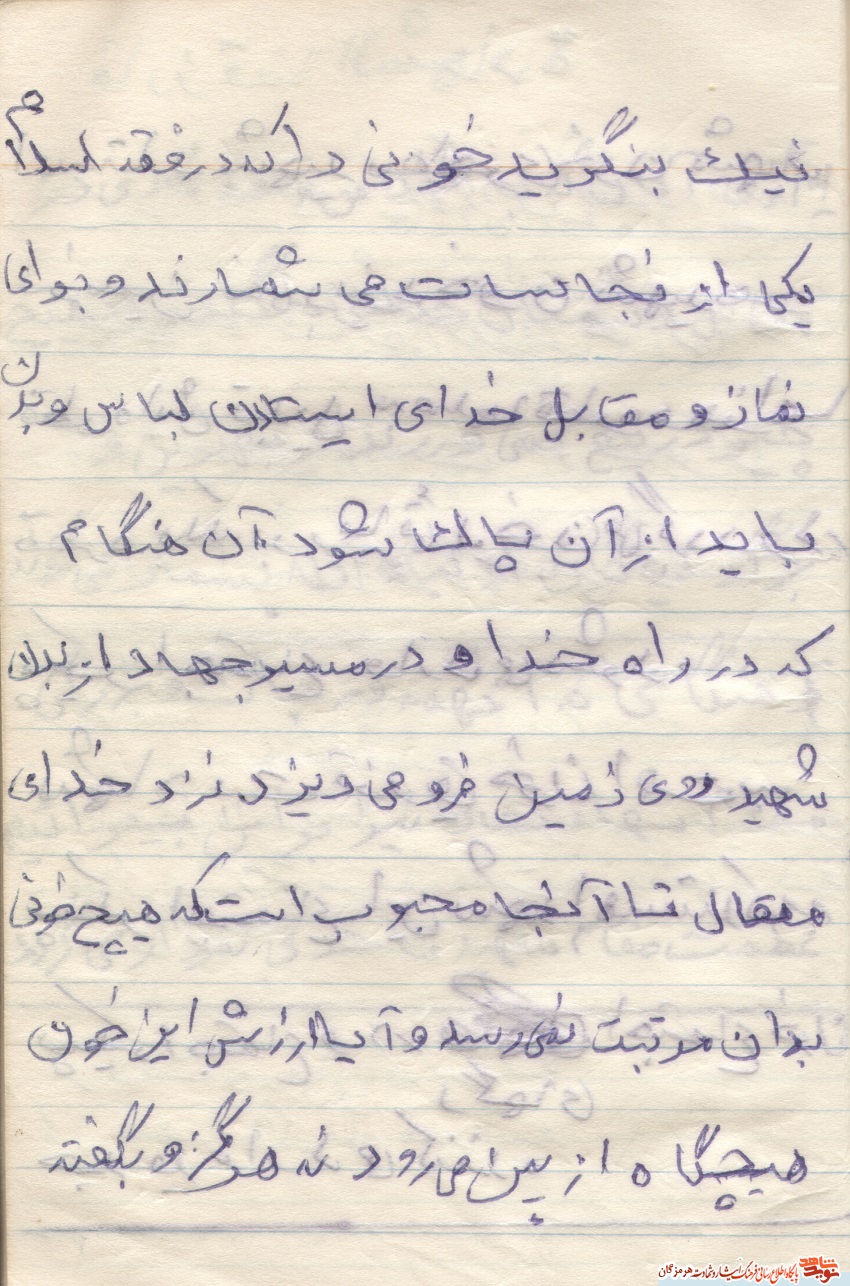 نیک بنگرید خونی را که در فقه اسلام
یکی از نجاسات می شمارند و برای
نماز و مقابل خدای ایستادن لباس و بدن
باید از آن پاک شود آن هنگام
که در راه خدا و در مسیر جهاد از بدن
شهید روی زمین فرو می ریزد نزد خدای
متعال تا آنجا محبوب است که هیچ خونی
بدان مرتبت نمی رسد و آیا ارزش این خون
هیچگاه از بین می رود نه هرگز و بگفته
نوید شاهد
پایگاه اطلاع رسانی فرهنگ ایثار و شهادت هرمزگان